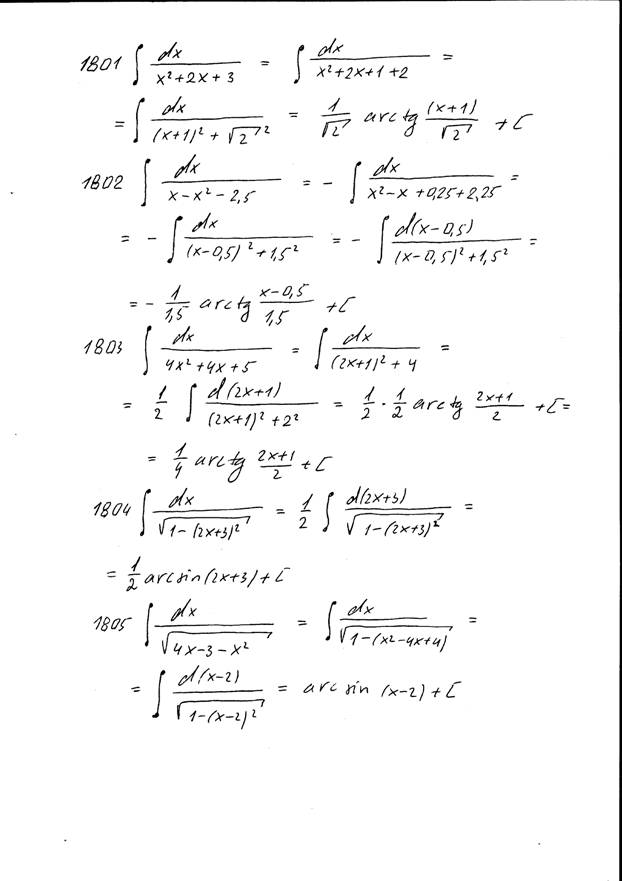 1801 ∫ dx/(x²+2x+3) = ∫ dx/(x²+2x+1+2) =
= ∫ dx/((x+1)²+√2²) = 1/√2 arctg (x+1)/√2 + C
1802 ∫ dx/(x-x²-2,5) = - ∫ dx/(x²-x+0,25+2,25) =
= - ∫ dx/((x-0,5)²+1,5²) = - ∫ d(x-0,5)/((x-0,5)²+1,5²) =
= - 1/1,5 arctg (x-0,5)/1,5 + C
1803 ∫ dx/(4x²+4x+5) = ∫ dx/((2x+1)²+4) =
= 1/2 ∫ d(2x+1)/((2x+1)²+2²) = 1/2 · 1/2 arctg (2x+1)/2 + C =
= 1/4 arctg (2x+1)/2 + C
1804 ∫ dx/√(1-(2x+3)²) = 1/2 ∫ d(2x+3)/√(1-(2x+3)²) =
= 1/2 arcsin(2x+3) + C
1805 ∫ dx/√(4x-3-x²) = ∫ dx/√(1-(x²-4x+4)) =
= ∫ d(x-2)/√(1-(x-2)²) = arcsin (x-2) + C